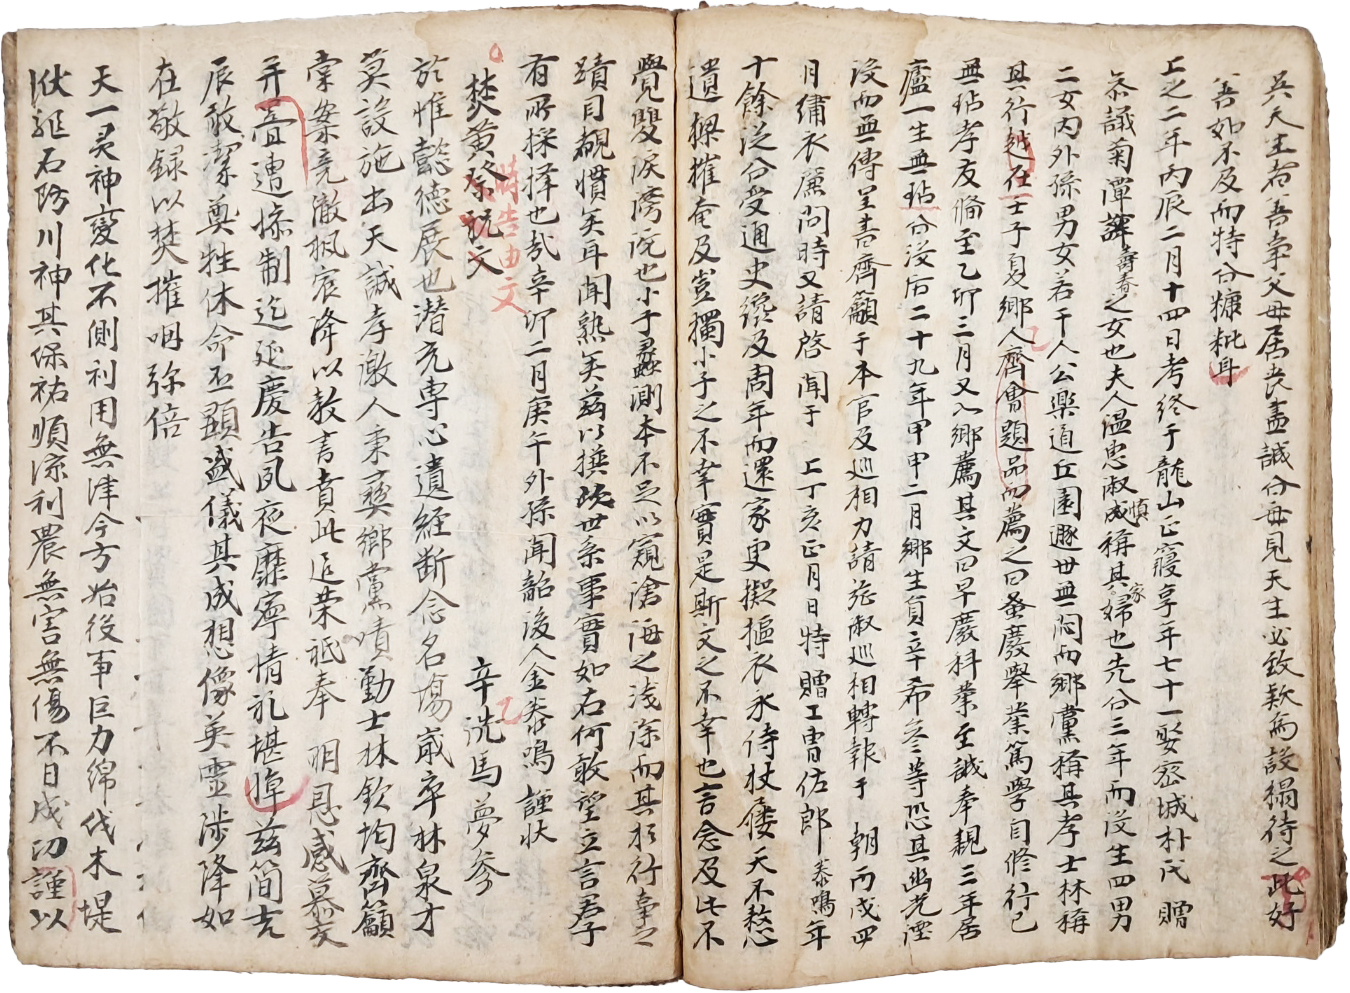 吳天主者吾事父母居喪盡誠公每見天主必致款爲設榻待之此好
善如不及而特公糠粃耳
上之二年丙辰二月十四日考終于龍山正寢享年七十一娶密城朴氏贈
參議菊潭譯壽春之女也夫人溫惠淑愼成稱其家婦也先公三年而沒生四男
二女內外孫男女若干人公樂道丘園遯世無悶而鄕黨稱其孝士林稱
其行越在士子夏鄕人齊會題品而薦之曰蚤廢擧業篤學自修行己
無玷孝友備至乙卯三月又入鄕薦其文曰早廢科業至誠奉親三年居
廬一生無玷公沒后二十九年甲申二月鄕生負辛希參等恐其幽光湮
沒而無傳呈書齊籲于本官及巡相乃請旌淑巡相轉報于 朝丙戌四
月繡衣廉問時又請啓聞于 上丁亥正月日特贈工曹佐郞泰鳴年
十餘從公受通史纔及周年而還家更擬摳衣承侍杖屨天不憖
遺樑摧奄及豈獨小子之不幸實是斯文之不幸也言念及此不
覺雙淚濟沆也小子蠡測本不足以窺滄海之淺深而其於行辜之
蹟目覩慣矣耳聞熟矣茲以撰次世系事實如右何敢望立言君子
有所採擇也哉辛卯二月庚午外孫聞韶後人金泰鳴謹狀
焚黃祭祝文 時告由文
辛洗馬夢參
於惟懿德展也潛光專心遺經斷念名場嵗卒林泉才
莫設施出天誠孝激人秉彜鄕黨嘖動士林欽均齊籲
棠案竟徹楓宸降以敎言賁此追榮祗奉 明恩感慕交
幷 遭揲制迄延慶告夙夜靡寧情禮堪障茲簡吉
辰敢潔奠牲休命丕顯盛儀其成想像英靈陟降如
在敬錄以焚摧咽弥倍
天一灵神變化不測利用無津今方始役事巨力綿伐木堤
伏 石防川神其保祐順流利農無害無傷不日成功謹以